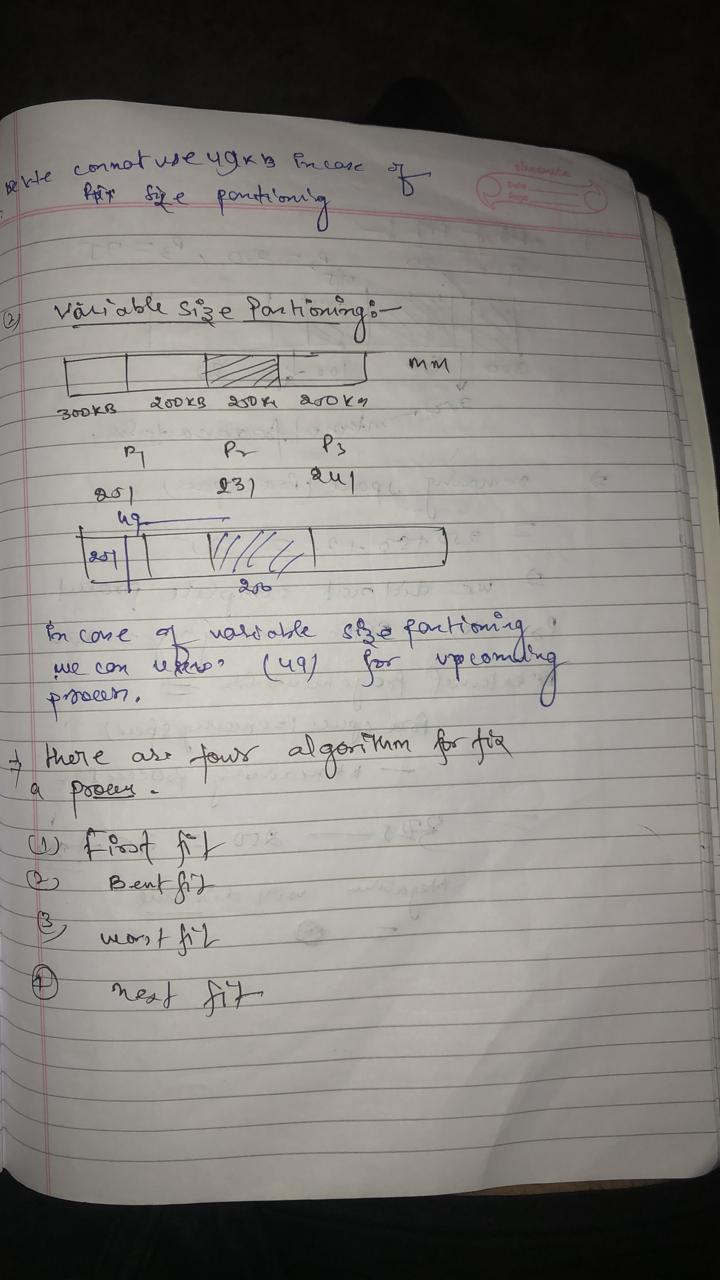 we connot use 49KB in case of
fix size partioning
(2) Variable Size Partioning:-
MM
300KB 200KB 250K 200KB
P1 P2 P3
251 231 241
49
251
200
in case of variable size partioning
we can (49) for upcomming
process.
→ there are four algorithm for fix
a process.
(1) First fit
(2) Best fit
(3) worst fit
(4) next fit